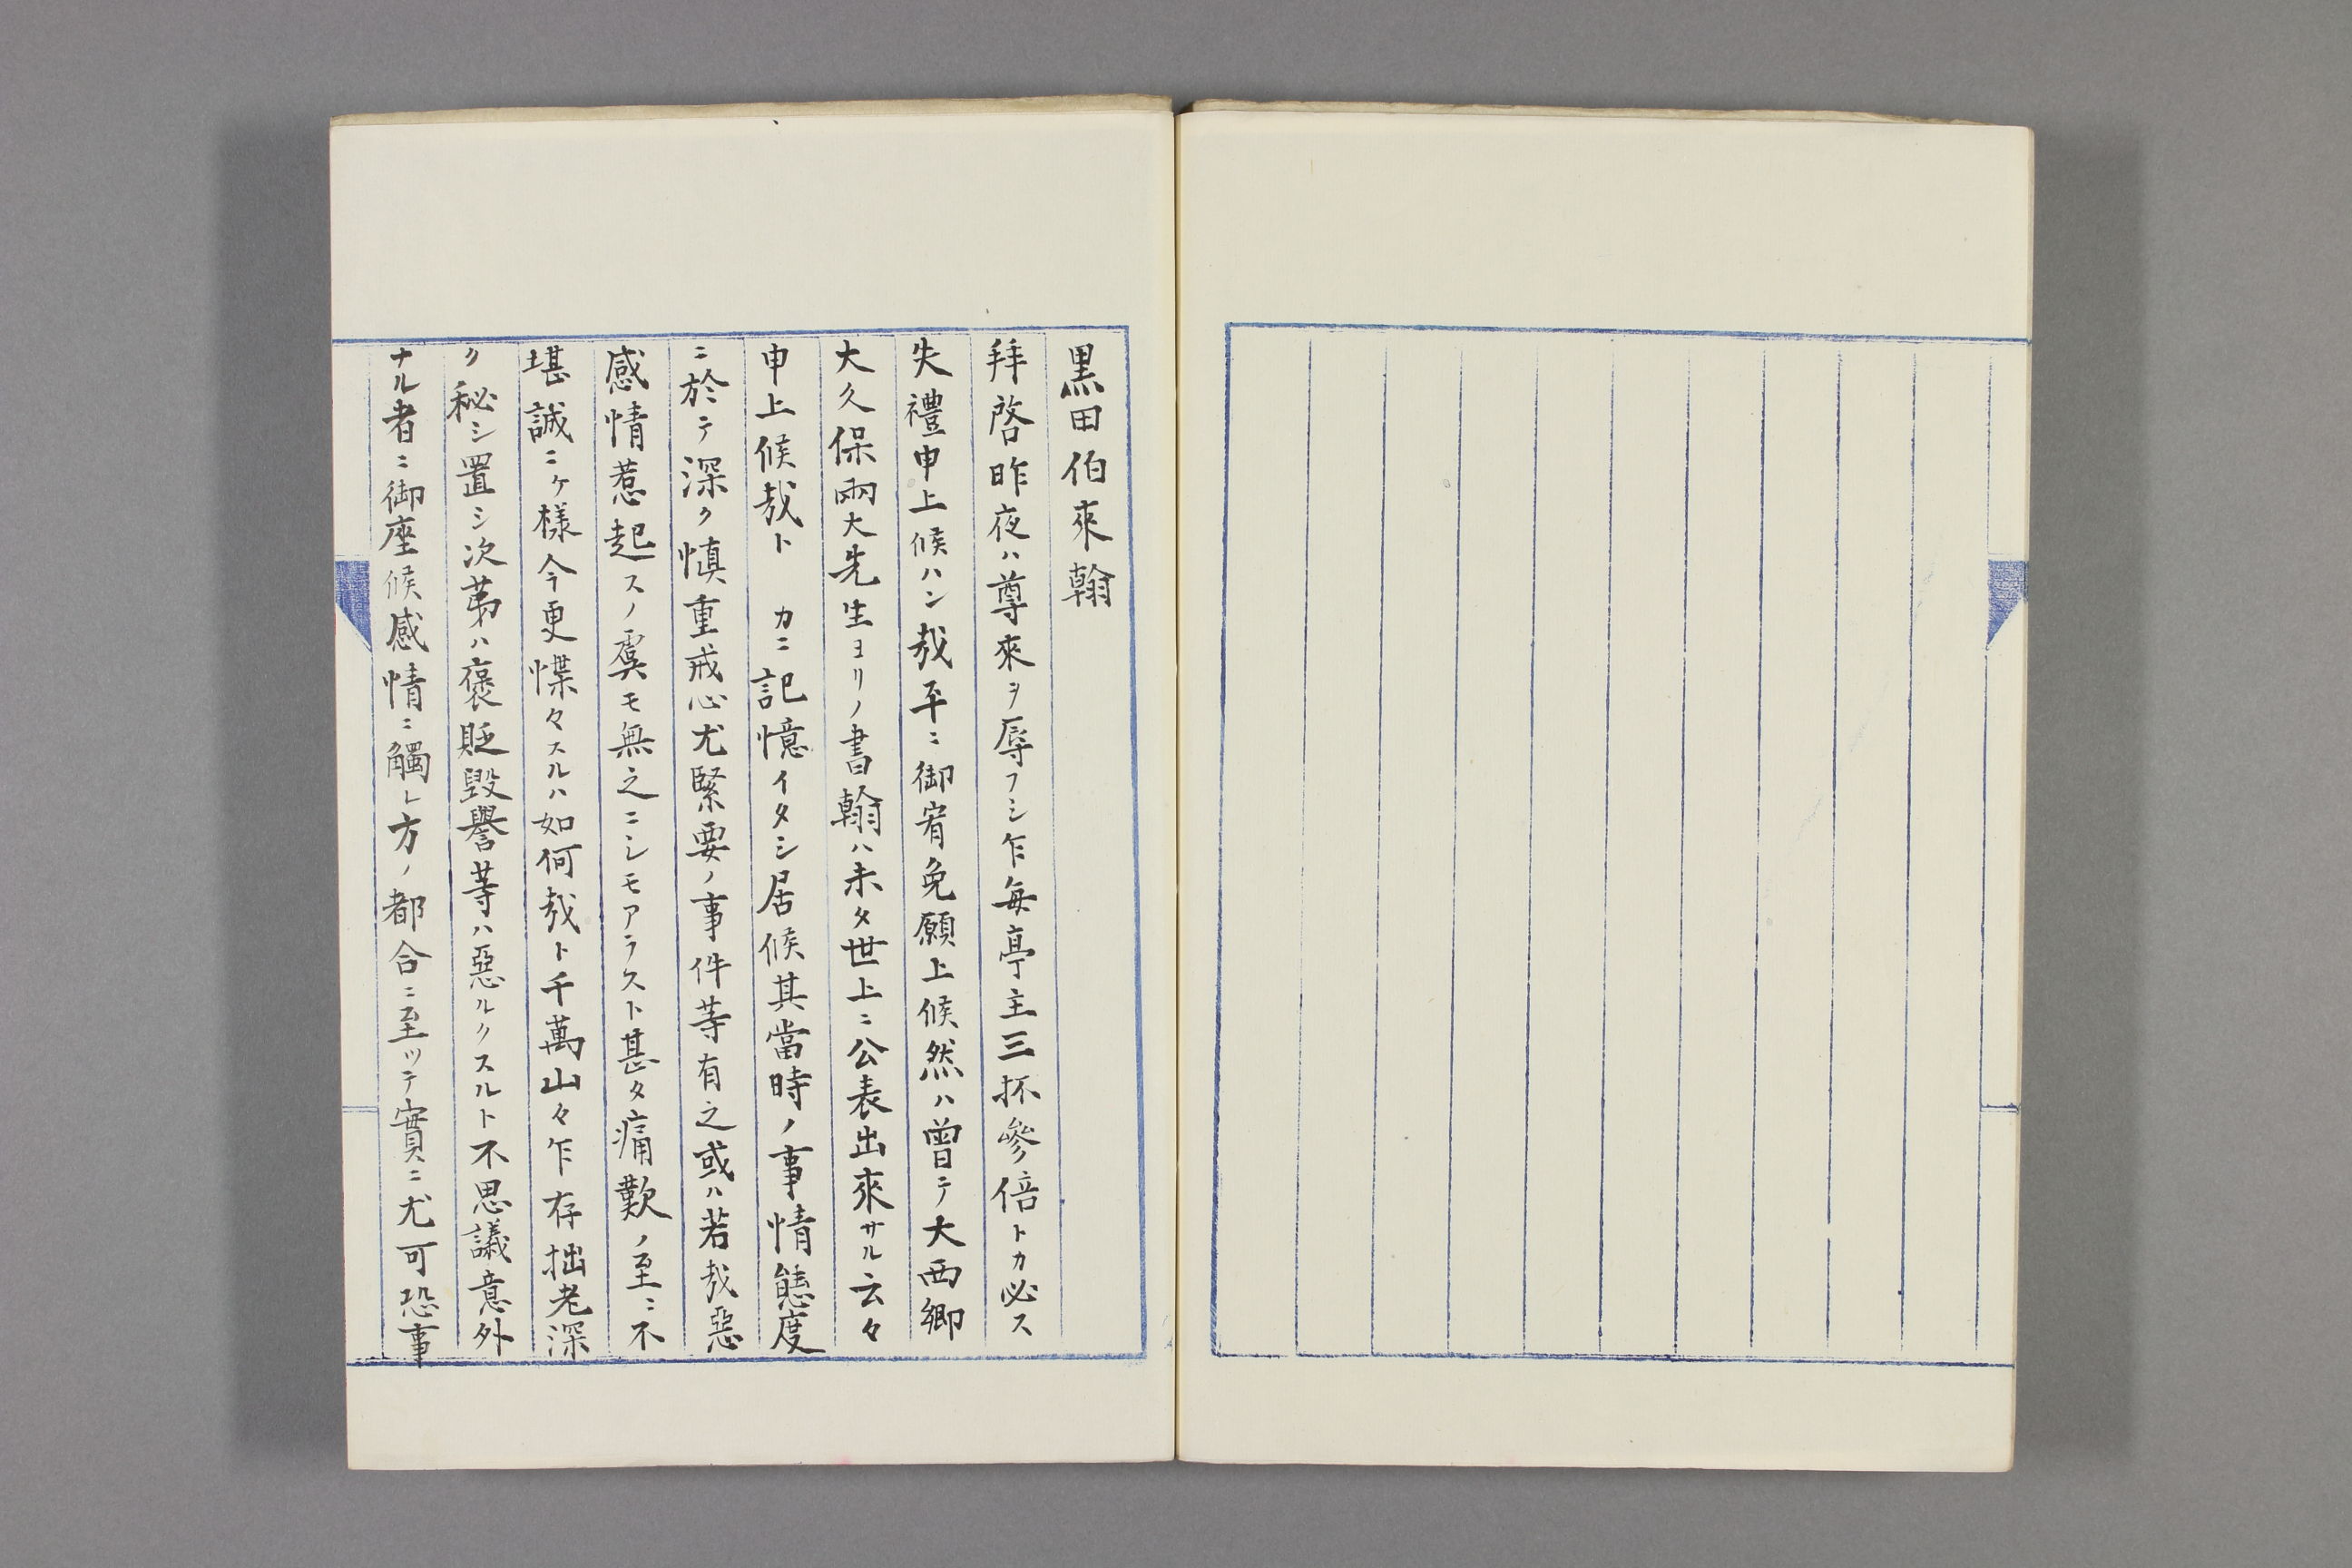 黒田伯來翰
拜啓昨夜ハ尊來ヲ辱フシ乍毎亭主三抔參倍トカ必ス
失禮申上候ハン哉平ニ御宥免願上候然ハ曽テ大西郷
大久保兩大先生ヨリノ書翰ハ未タ世上ニ公表出來サル云々
申上候哉ト　カニ記憶イタシ居候其當時ノ事情態度
ニ於テ深ク愼重戒心尤緊要ノ事件等有之或ハ若哉惡
感情惹起スノ虞モ無之ニシモアラスト甚タ痛歎ノ至ニ不
堪誠ニケ樣今更惵々スルハ如何哉ト千萬山々乍存拙老深
ク秘シ置シ次第ハ褒貶毀譽等ハ惡ルクスルト不思議意外
ナル者ニ御座候感情ニ觸レ方ノ都合ニ至ッテ實ニ尤可恐事